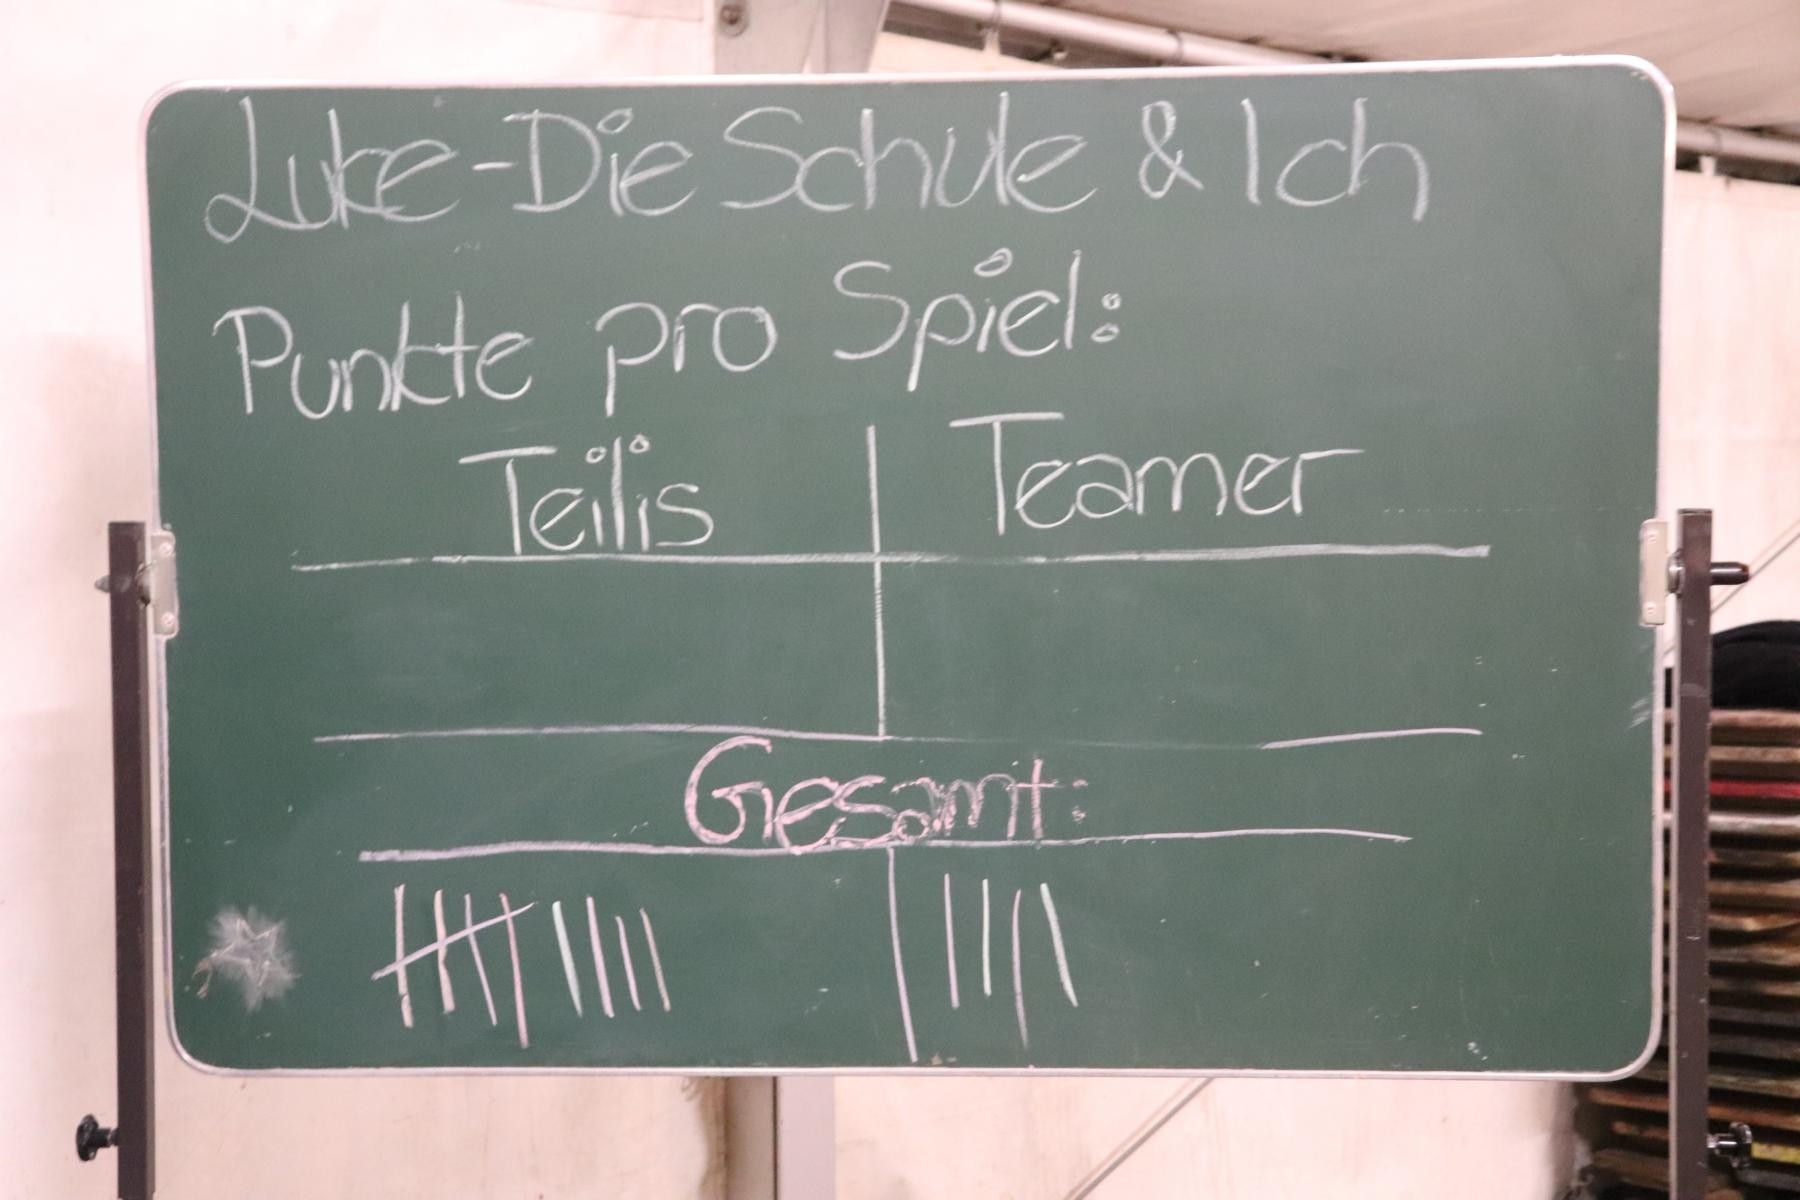 Luke-Die Schule & Ich
Punkte pro Spiel:
Teilis Teamer
Gesamt: